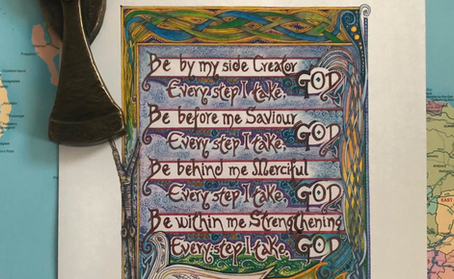 Be by my side Creator
Every step I take. GOD
Be before me Saviour
Every step I take. GOD
Be behind me Merciful
Every step I take. GOD
Be within me Strengthening
Every step I take. GOD
EAST